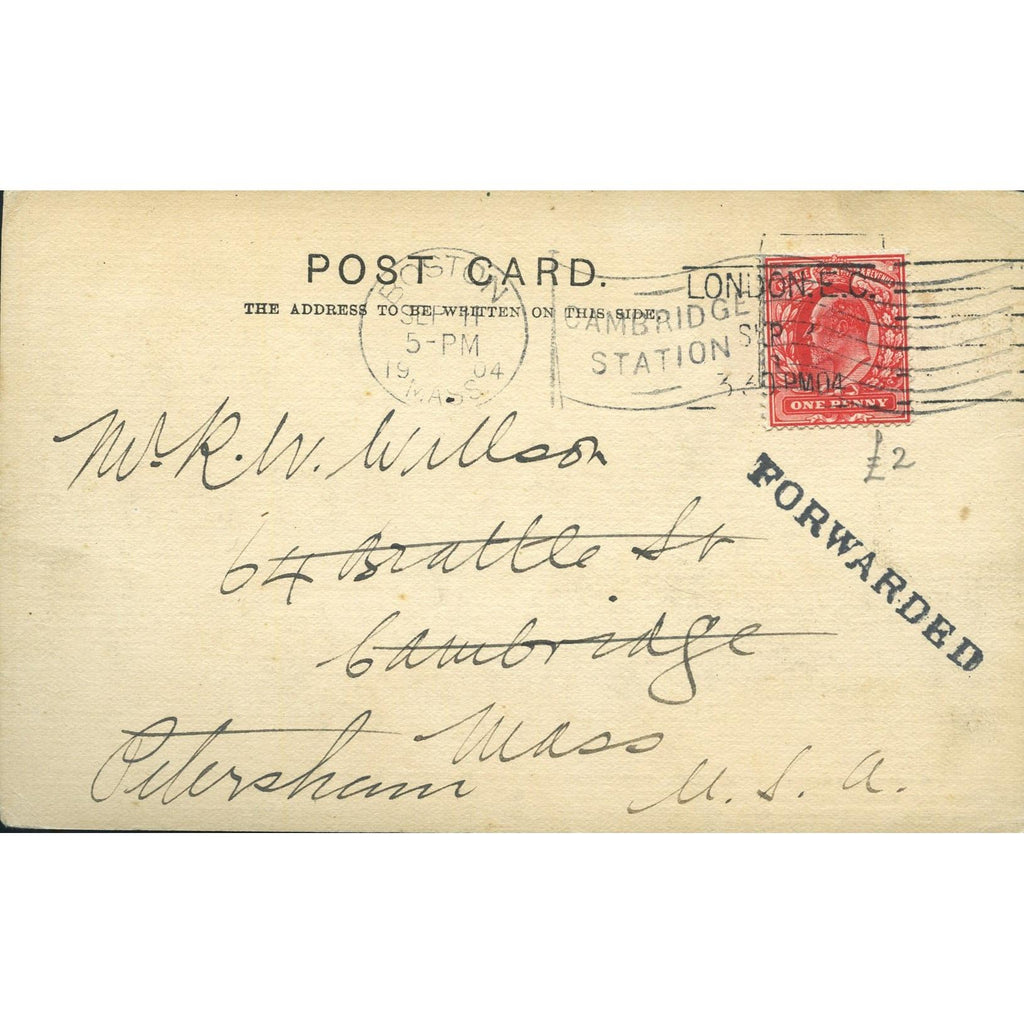 POST CARD.
THE ADDRESS TO BE WRITTEN ON THIS SIDE.
BOSTON
SEP 11
5-PM
19 04
MASS.
CAMBRIDGE
STATION
LONDON. E.C.
SEP
PM 04
ONE PENNY
£2
FORWARDED
Mr. R. W. Willson
64 Brattle St
Cambridge
Mass
Petersham
U. S. A.